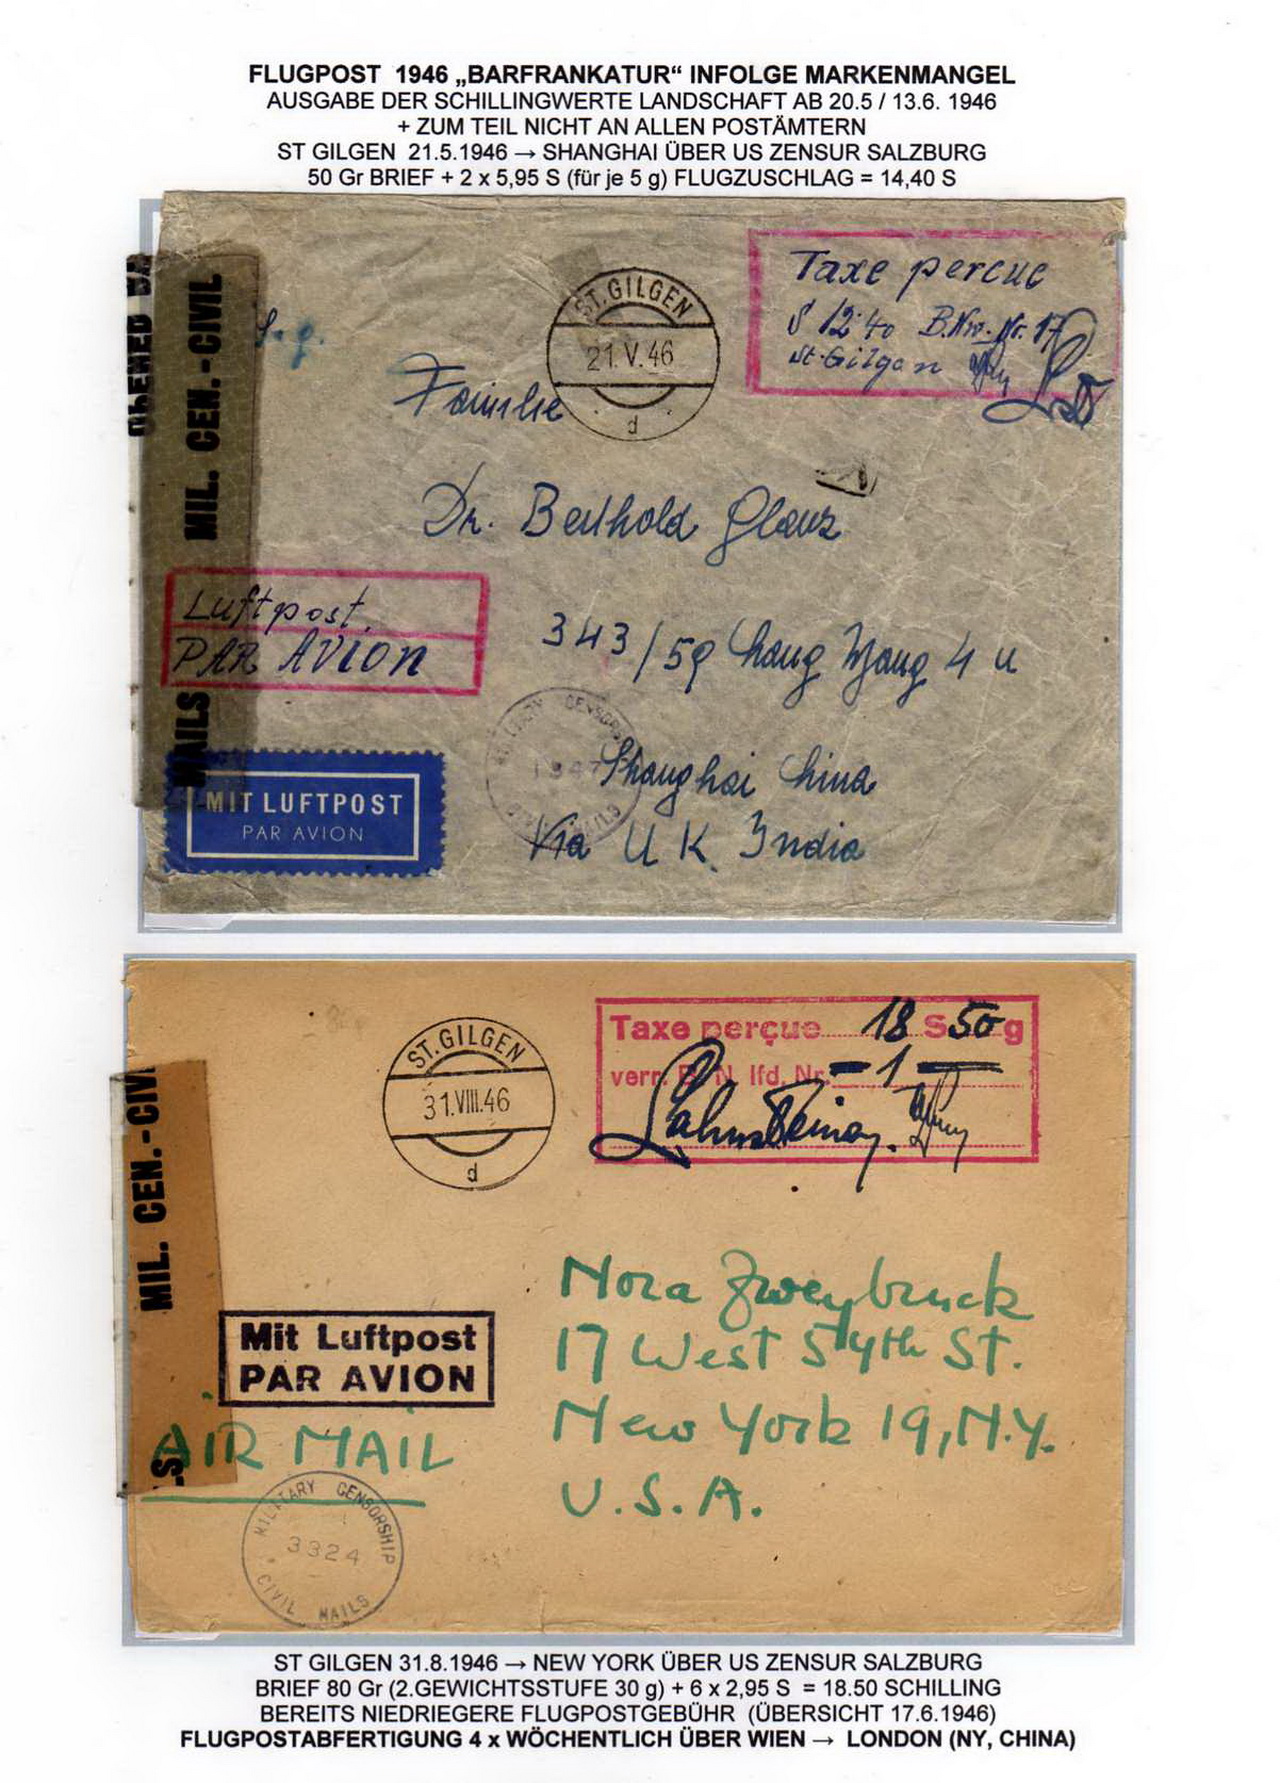 FLUGPOST 1946 „BARFRANKATUR“ INFOLGE MARKENMANGEL
AUSGABE DER SCHILLINGWERTE LANDSCHAFT AB 20.5 / 13.6. 1946
+ ZUM TEIL NICHT AN ALLEN POSTÄMTERN
ST GILGEN 21.5.1946 → SHANGHAI ÜBER US ZENSUR SALZBURG
50 Gr BRIEF + 2 x 5,95 S (für je 5 g) FLUGZUSCHLAG = 14,40 S
OPENED
MIL. CEN.-CIVIL MAILS
ST. GILGEN
21.V.46
d
Taxe percue
S 12·40 B.Nr. Nr. 17
St. Gilgen
Familie
Dr. Berthold Glanz
343/59 Chang Yang 4 u
Shanghai China
Via U K. India
Luftpost.
PAR AVION
MILITARY CENSORSHIP
MIT LUFTPOST
PAR AVION
MIL. CEN.-CIVI
LS
ST. GILGEN
31.VIII.46
d
Taxe perçue 18 S 50 g
verr. B. N. lfd. Nr. -1-
Nora Zweybruck
17 West 54th St.
New York 19, N.Y.
U.S.A.
Mit Luftpost
PAR AVION
AIR MAIL
MILITARY CENSORSHIP
3324
CIVIL MAILS
ST GILGEN 31.8.1946 → NEW YORK ÜBER US ZENSUR SALZBURG
BRIEF 80 Gr (2.GEWICHTSSTUFE 30 g) + 6 x 2,95 S = 18.50 SCHILLING
BEREITS NIEDRIEGERE FLUGPOSTGEBÜHR (ÜBERSICHT 17.6.1946)
FLUGPOSTABFERTIGUNG 4 x WÖCHENTLICH ÜBER WIEN → LONDON (NY, CHINA)